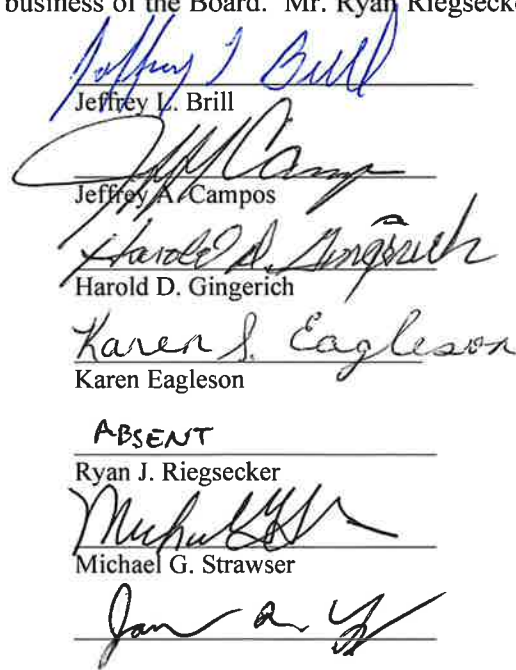 business of the Board. Mr. Ryan Riegsecke
Jeffrey L Brill
Jeffrey L. Brill
Jeffrey A. Campos
Harold D. Gingerich
Harold D. Gingerich
Karen S. Eagleson
Karen Eagleson
ABSENT
Ryan J. Riegsecker
Michael G. Strawser